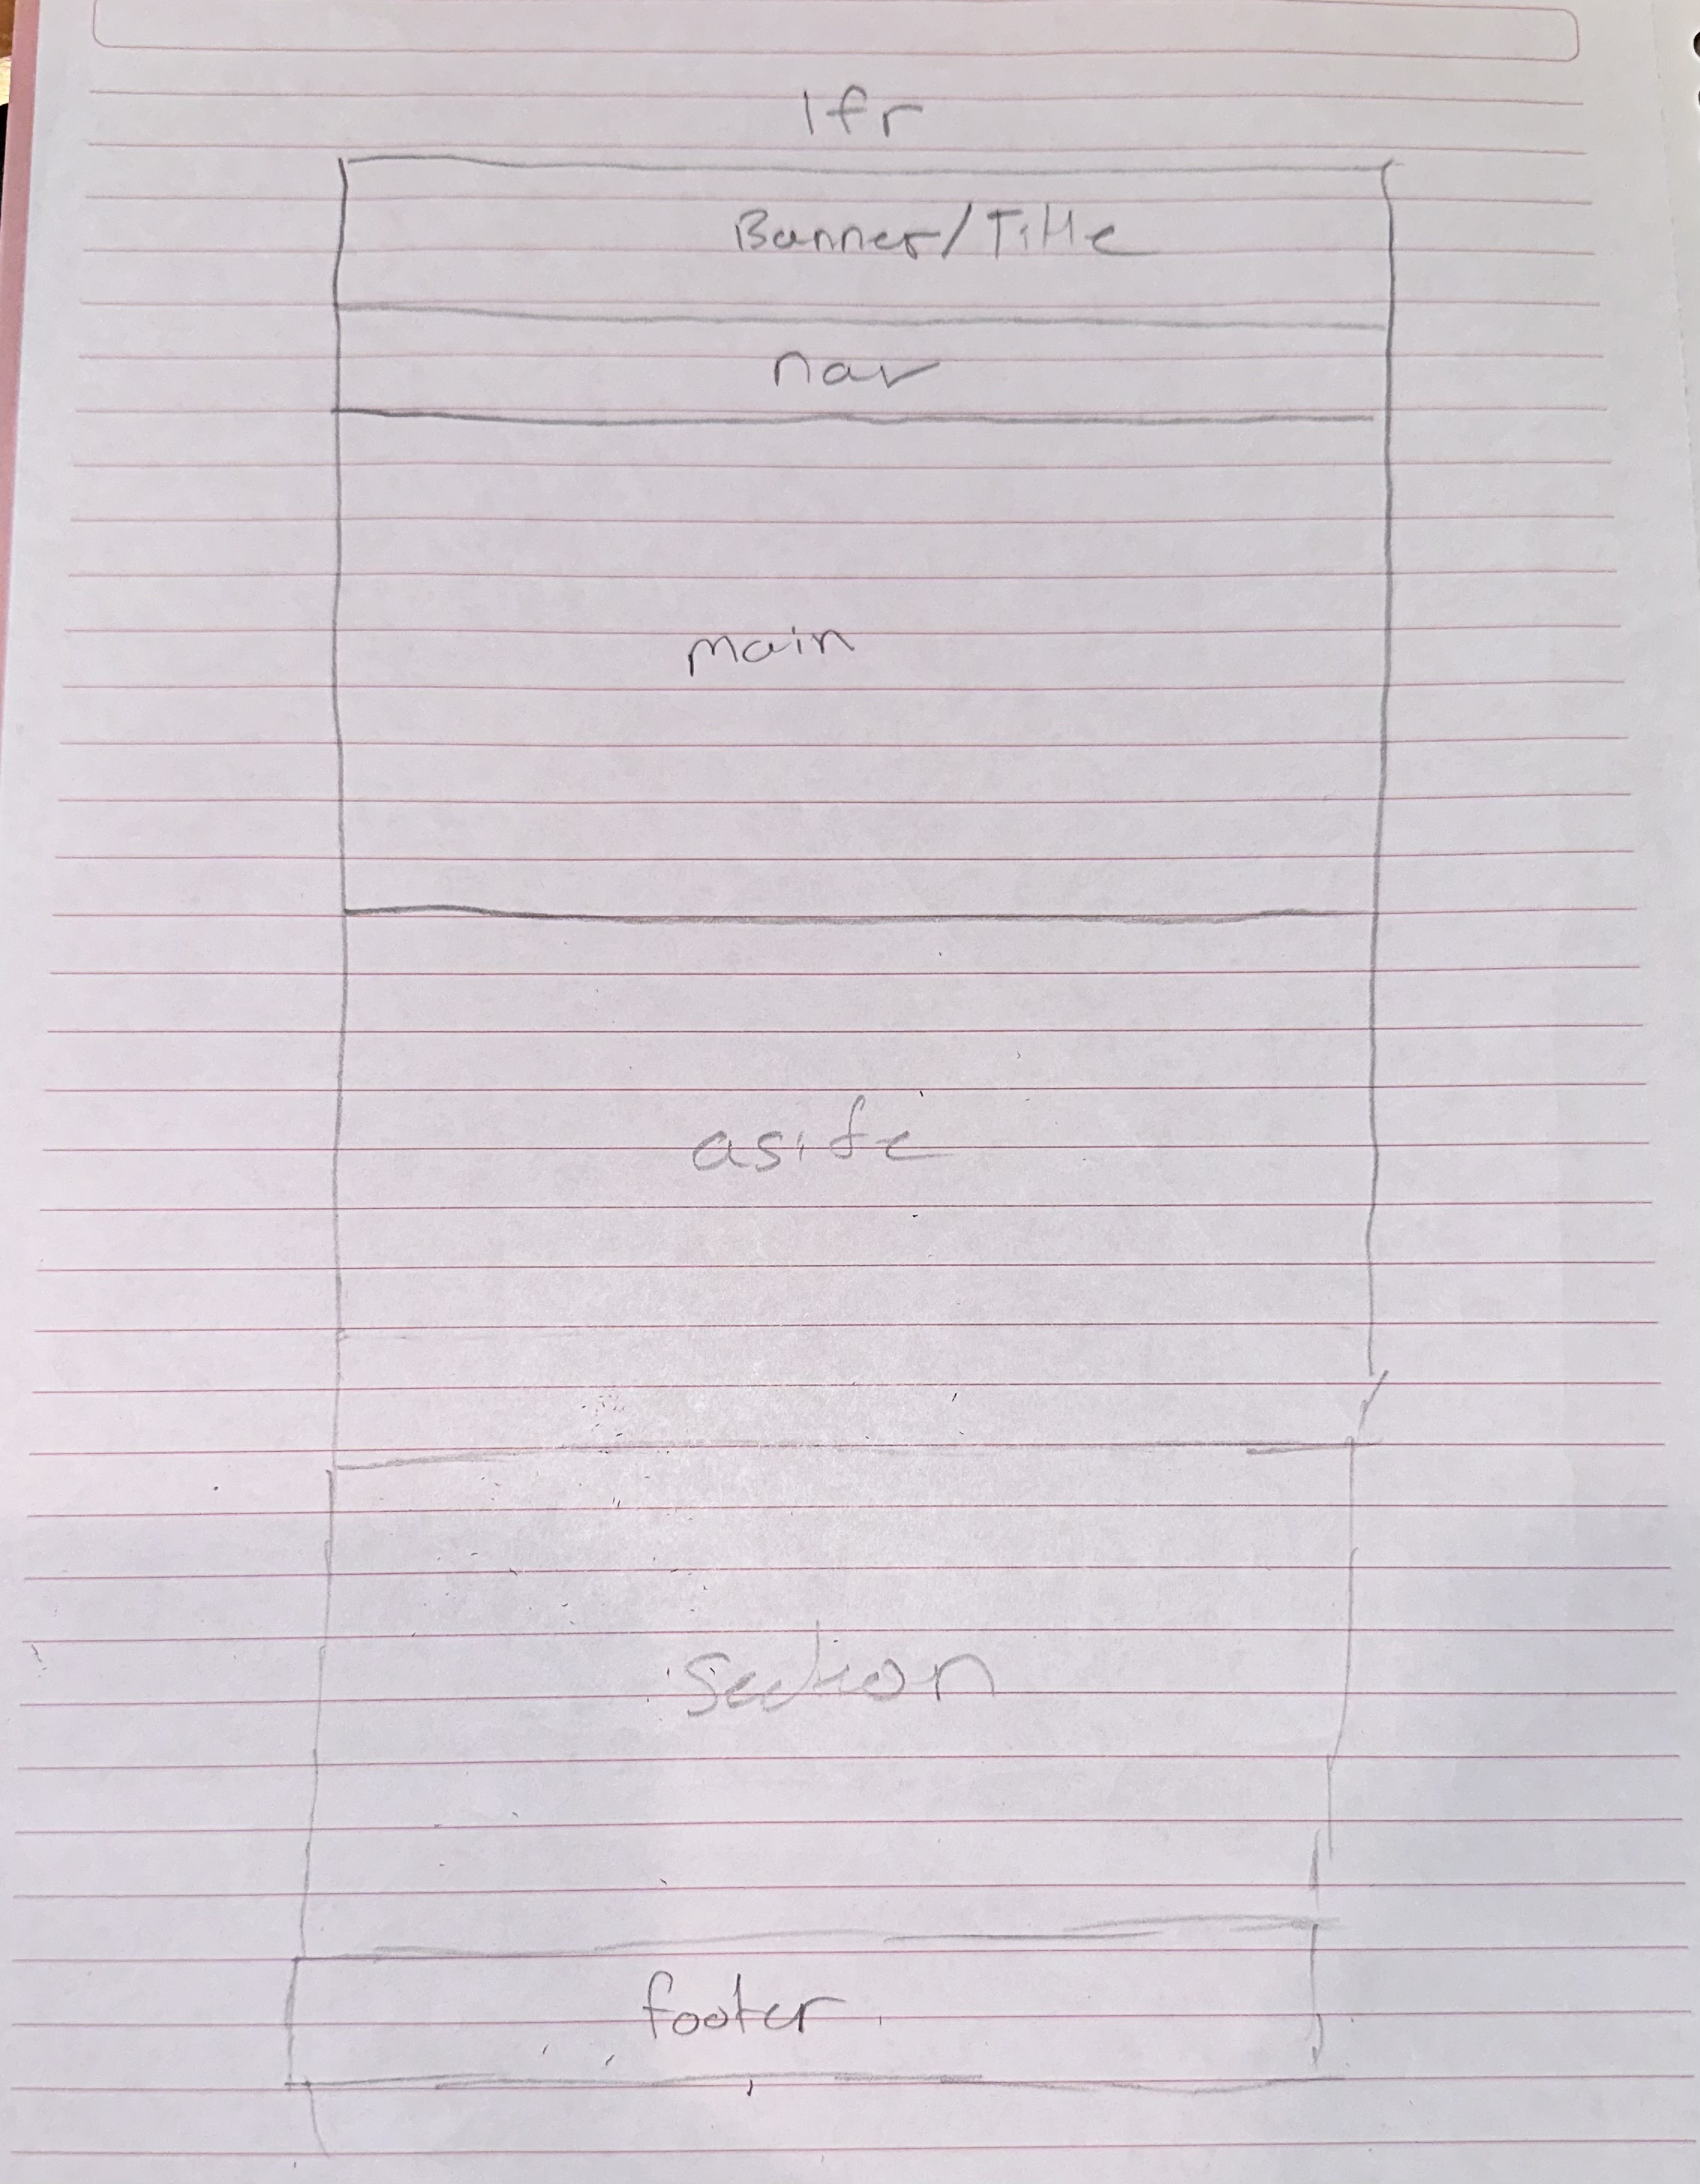 1fr
Banner/Title
nav
main
aside
section
footer